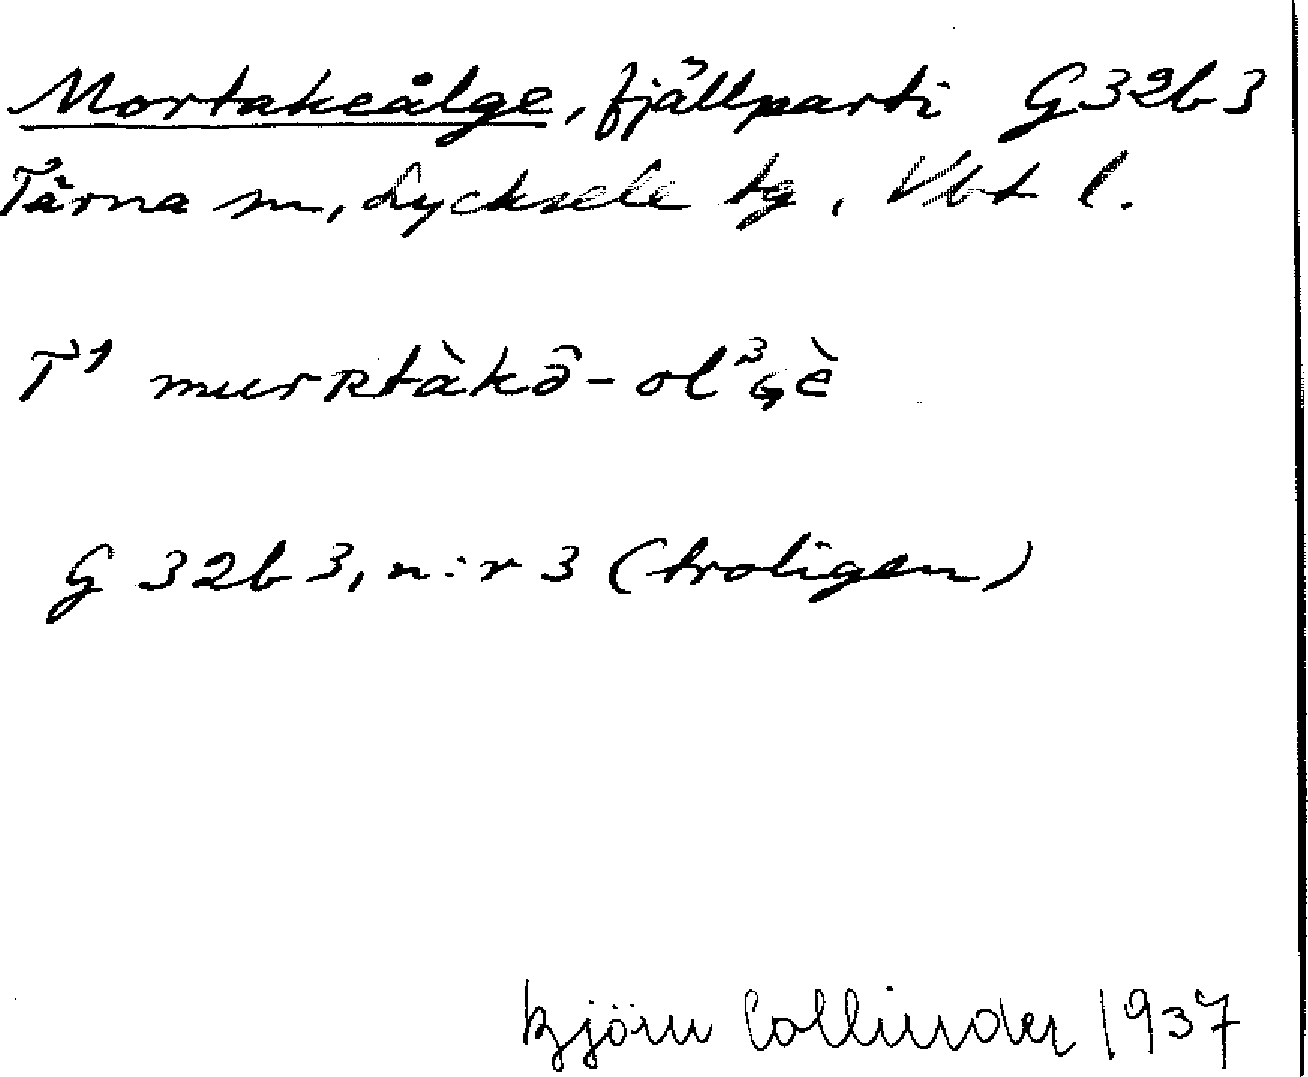 Mortakeålge, fjällparti G32b3
Tärna sn, Lycksele lg, Vbt l.
T¹ murʀtàkō̂-olᵌɢ̀è
G 32b3, n:r 3 (troligen)
Björn Collinder 1937